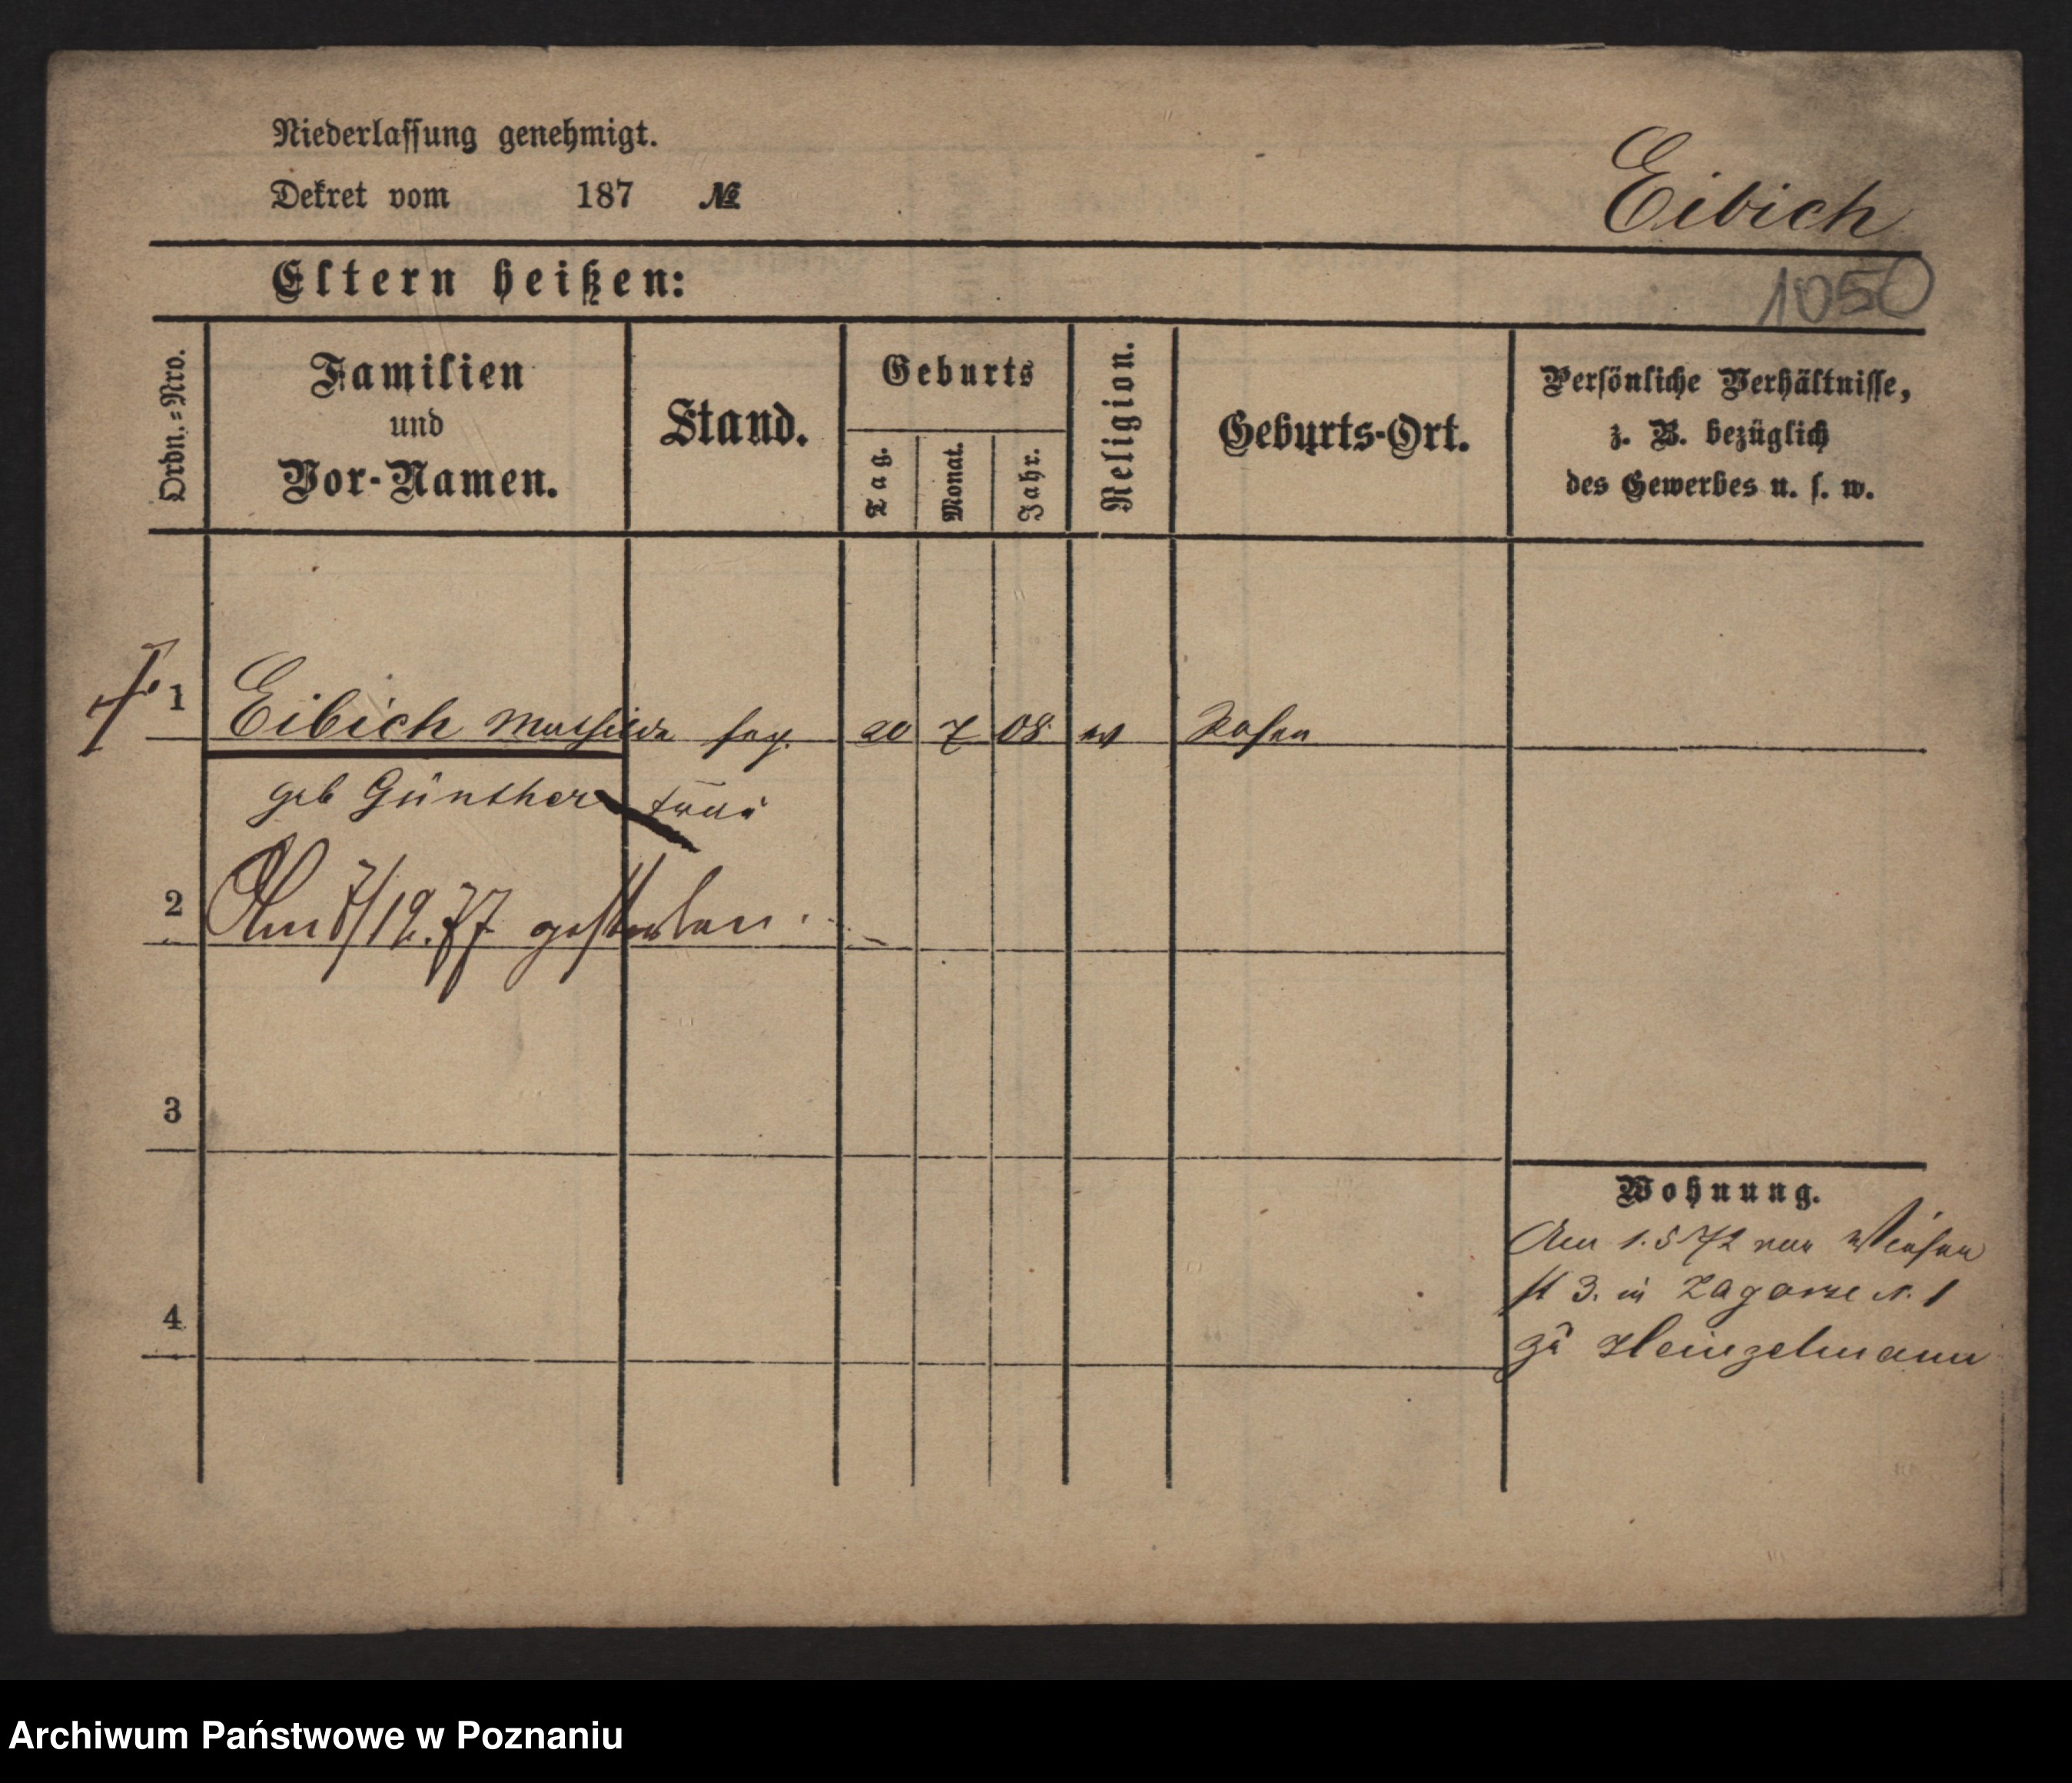 Niederlassung genehmigt.
Dekret vom 187 №
Eibich
Eltern heißen:
1050
Ordn.=Nro.
Familien
und
Vor-Namen.
Stand.
Geburts
Tag.
Monat.
Jahr.
Religion.
Geburts-Ort.
Persönliche Verhältnisse,
z. B. bezüglich
des Gewerbes u. s. w.
1 Eibich Mathilde sep. 20 7 08 Posen
geb Günther frau
2 Am 7/12.77 gestorben.
3
Wohnung.
Am 1.5 72 von Wiesen
st 3. in Zagorze N. 1
zu Heinzelmann
4
Archiwum Państwowe w Poznaniu